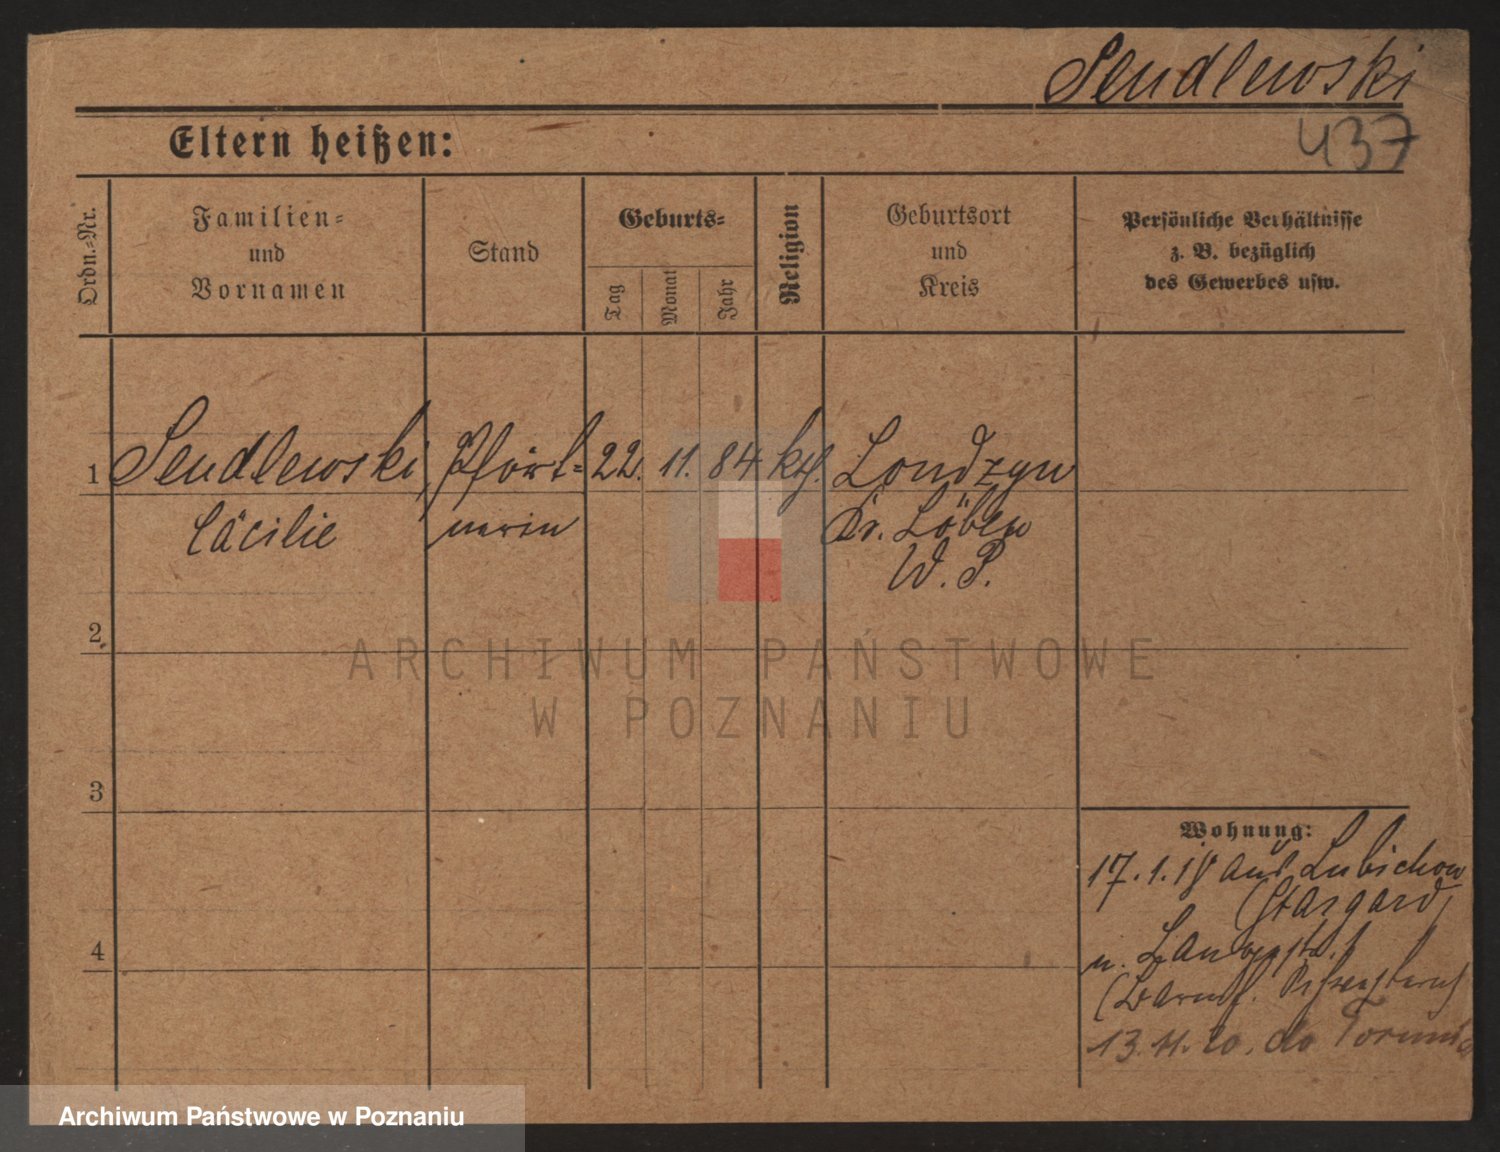 Sendlewski
437
Eltern heißen:
Ordn.-Nr.
Familien-
und
Vornamen
Stand
Geburts-
Tag
Monat
Jahr
Religion
Geburtsort
und
Kreis
Persönliche Verhältnisse
z. B. bezüglich
des Gewerbes usw.
1 Sendlewski, Pfört- 22. 11. 84 kth. Londzyn
Cäcilie nerin Kr. Löbau
W. P.
2
3
4
Wohnung:
17. 1. 18 aus Lubichow
(Stargard)
u.
13. 11. 20. do Torunia
ARCHIWUM PAŃSTWOWE
W POZNANIU
Archiwum Państwowe w Poznaniu